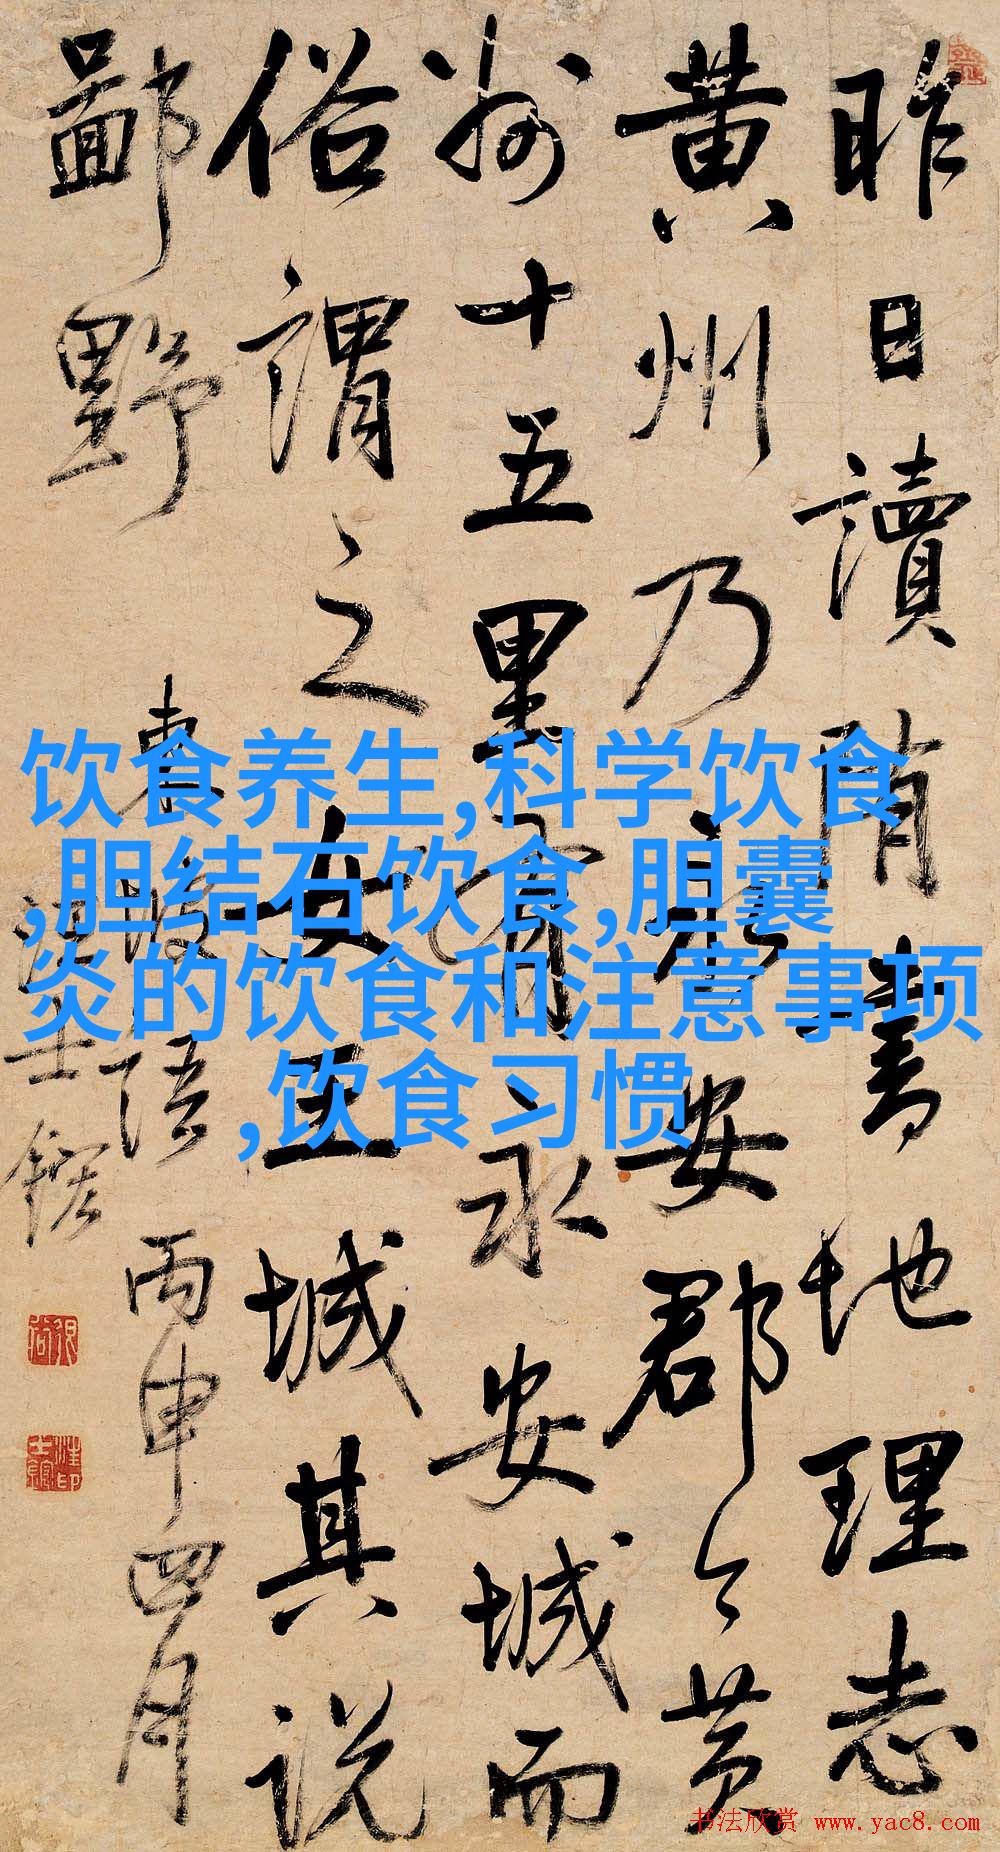 昨日讀隋書地理志
黃州乃永安郡今黃
州十五里有永安城而
俗謂之女王城其說
鄙野
東坡語 丙申四月
汪士鋐
饮食养生,科学饮食
,胆结石饮食,胆囊
炎的饮食和注意事项
,饮食习惯
书法欣赏 www.yac8.com